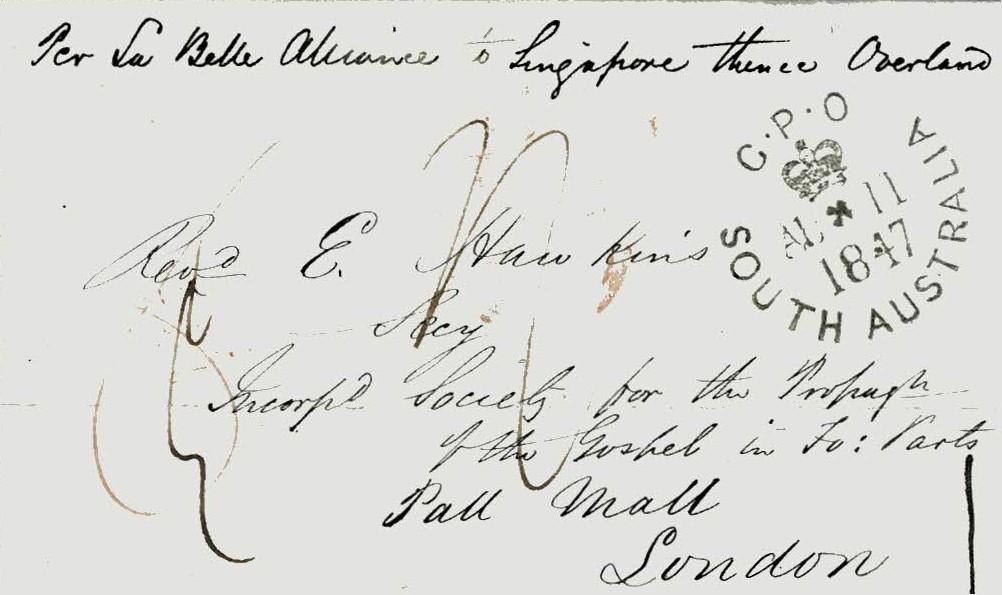 Per La Belle Alliance to Singapore thence Overland
G.P.O
SOUTH AUSTRALIA
11
1847
Revd E. Hawkins
Secy
Incorpd Society for the Propagn
of the Gospel in Fo: Parts
Pall Mall
London